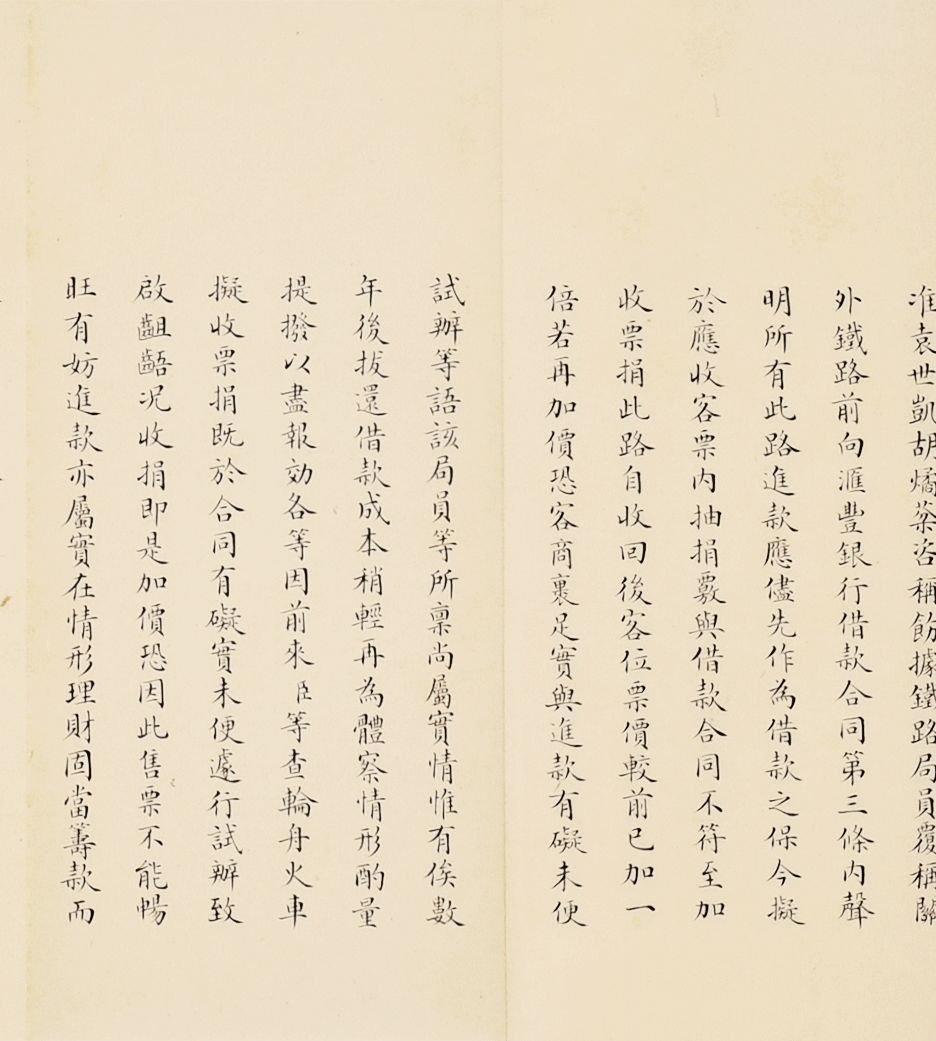 准袁世凱胡燏棻咨稱飭據鐵路局員覆稱關
外鐵路前向滙豐銀行借款合同第三條内聲
明所有此路進款應儘先作為借款之保今擬
於應收客票内抽捐覈與借款合同不符至加
收票捐此路自收回後客位票價較前已加一
倍若再加價恐客商裹足實與進款有礙未便
試辦等語該局員等所禀尚屬實情惟有俟數
年後拔還借款成本稍輕再為體察情形酌量
提撥以盡報効各等因前來臣等查輪舟火車
擬收票捐既於合同有礙實未便遽行試辦致
啟齟齬况收捐即是加價恐因此售票不能暢
旺有妨進款亦屬實在情形理財固當籌款而